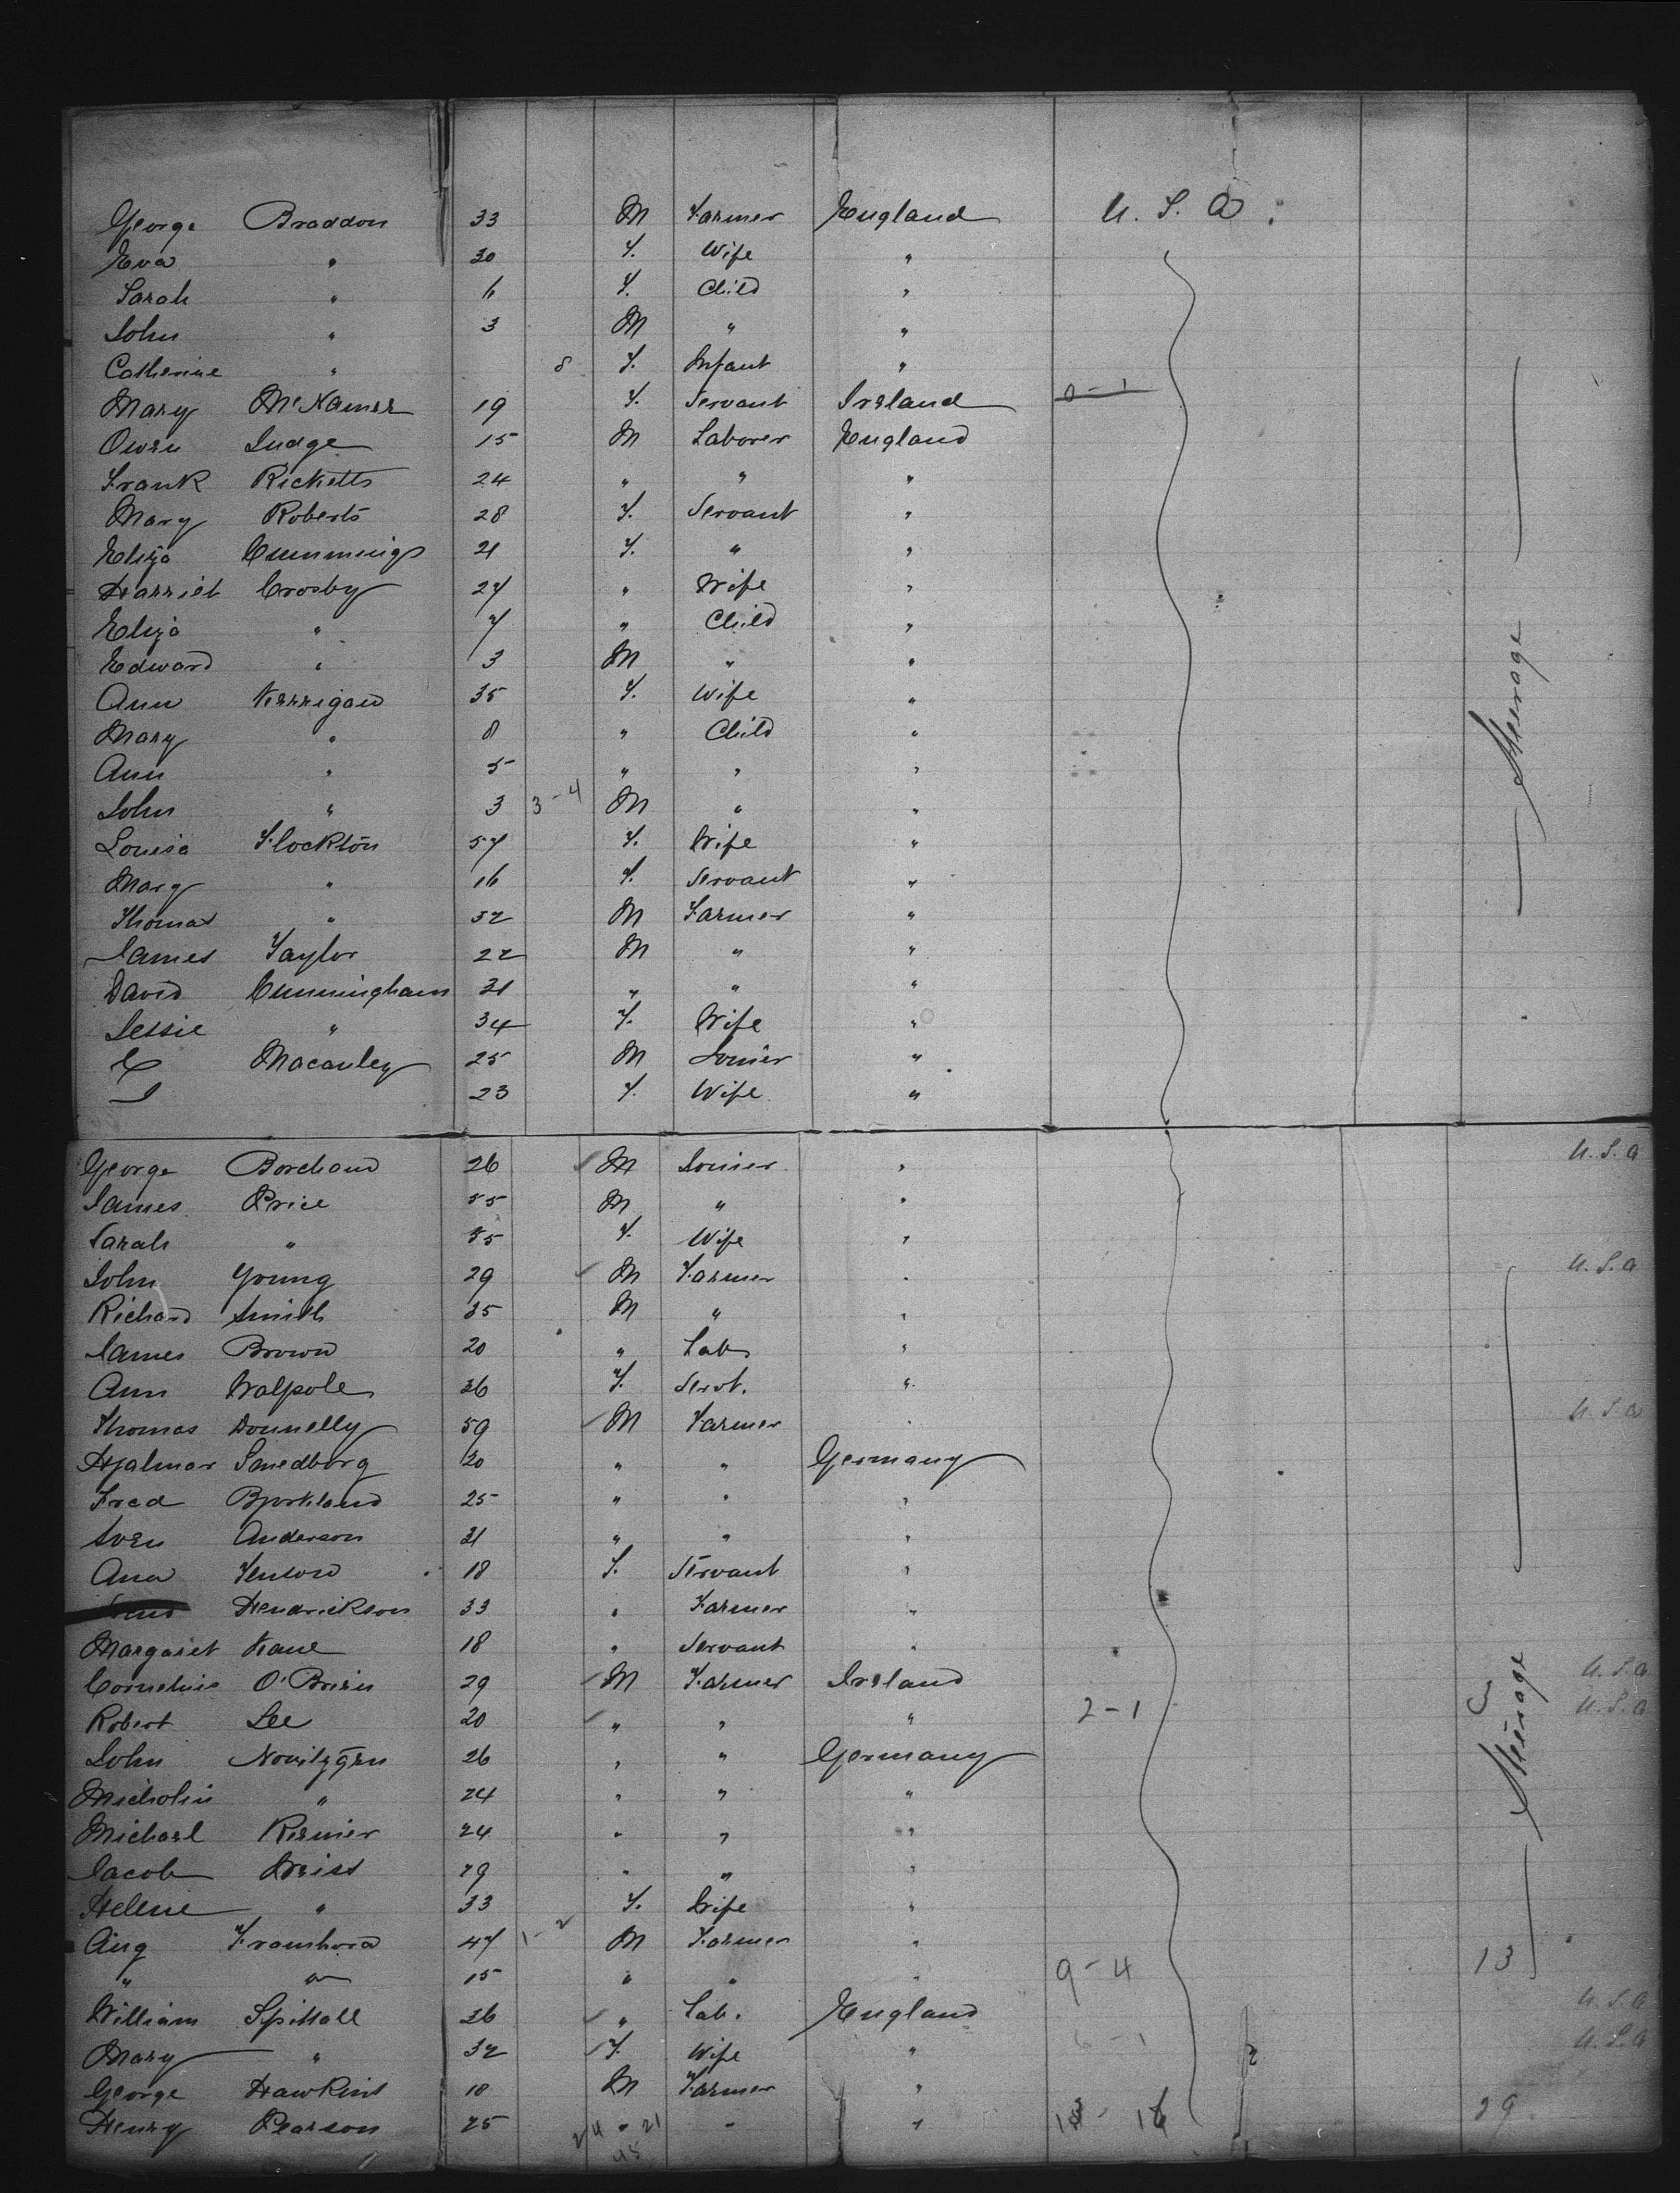 George Braddon 33 M Farmer England U. S. A.
Eva " 30 F. Wife "
Sarah " 6 F. Child "
John " 3 M " "
Catherine " 8 F. Infant "
Mary McNamer 19 F. Servant Ireland 0-1
Owen Judge 15 M Laborer England
Frank Ricketts 24 " " "
Mary Roberts 28 F. Servant "
Eliza Cummings 21 F. " "
Harriet Crosby 27 " Wife "
Eliza " 7 " Child "
Edward " 3 M " "
Ann Kerrigan 35 F. Wife "
Mary " 8 " Child "
Ann " 5 " " "
John " 3 3-4 M " "
Louisa Flockton 57 F. Wife "
Mary " 16 F. Servant "
Thomas " 32 M Farmer "
James Taylor 22 M " "
David Cunningham 31 " " "
Jessie " 34 F. Wife "
Macauley 25 M Joiner "
23 F. Wife "
Steerage
George Borchand 26 M Joiner " U.S.A
James Price 55 M " "
Sarah " 55 F. Wife "
John Young 29 M Farmer " U.S.A
Richard Smith 35 M " "
James Brown 20 " Lab "
Ann Walpole 36 F. Servt. "
Thomas Donnelly 59 M Farmer " U.S.A
Hjalmar Smedborg 20 " " Germany
Fred Bjorkland 25 " " "
Sven Anderson 21 " " "
Ana 18 F. Servant "
Hendrickson 33 " Farmer "
Margaret Kane 18 " Servant "
Cornelius O'Brien 29 M Farmer Ireland U.S.A
Robert Lee 20 " " " 2-1 U.S.A
John 26 " " Germany
" 24 " " "
Michael 24 " " "
Jacob 29 " " "
Helene " 33 F. Wife "
Aug 47 1-2 M Farmer "
" " 15 " " " 9-4 13
William Spittall 26 " Lab. England U.S.A
Mary " 32 F. Wife " 6-1 U.S.A
George Hawkins 18 M Farmer "
Henry Pearson 25 24 " 21 " " 16 29
45
Steerage